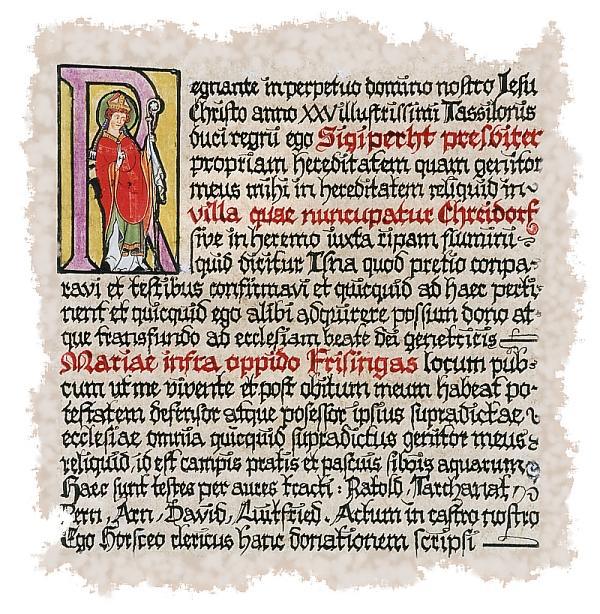 Regnante in perpetuo domino nostro Iesu
Christo anno XXV illustrissimi Tassilonis
duci regni ego Sigiperht presbiter
propriam hereditatem quam genitor
meus mihi in hereditatem reliquid in
villa quae nuncupatur Chreidorf
sive in heremo iuxta ripam flumini
quid dicitur Isna quod pretio conpa-
ravi et testibus confirmavi et quicquid ad haec perti-
nent et quicquid ego alibi adquirere possum dono at-
que transfundo ad ecclesiam beate dei genetricis
Mariae infra oppido Frisingas locum pub-
cum ut me vivente et post obitum meum habeat po-
testatem defensor atque posessor ipsius supradictae
ecclesiae omnia quicquid supradictus genitor meus
reliquid, id est campis pratis et pascuis silvis aquarum
Haec sunt testes per aures tracti: Ratold, Tarchanat,
Pern, Arn, David, Liutfried. Actum in castro nostro
Ego Horsceo clericus hanc donationem scripsi